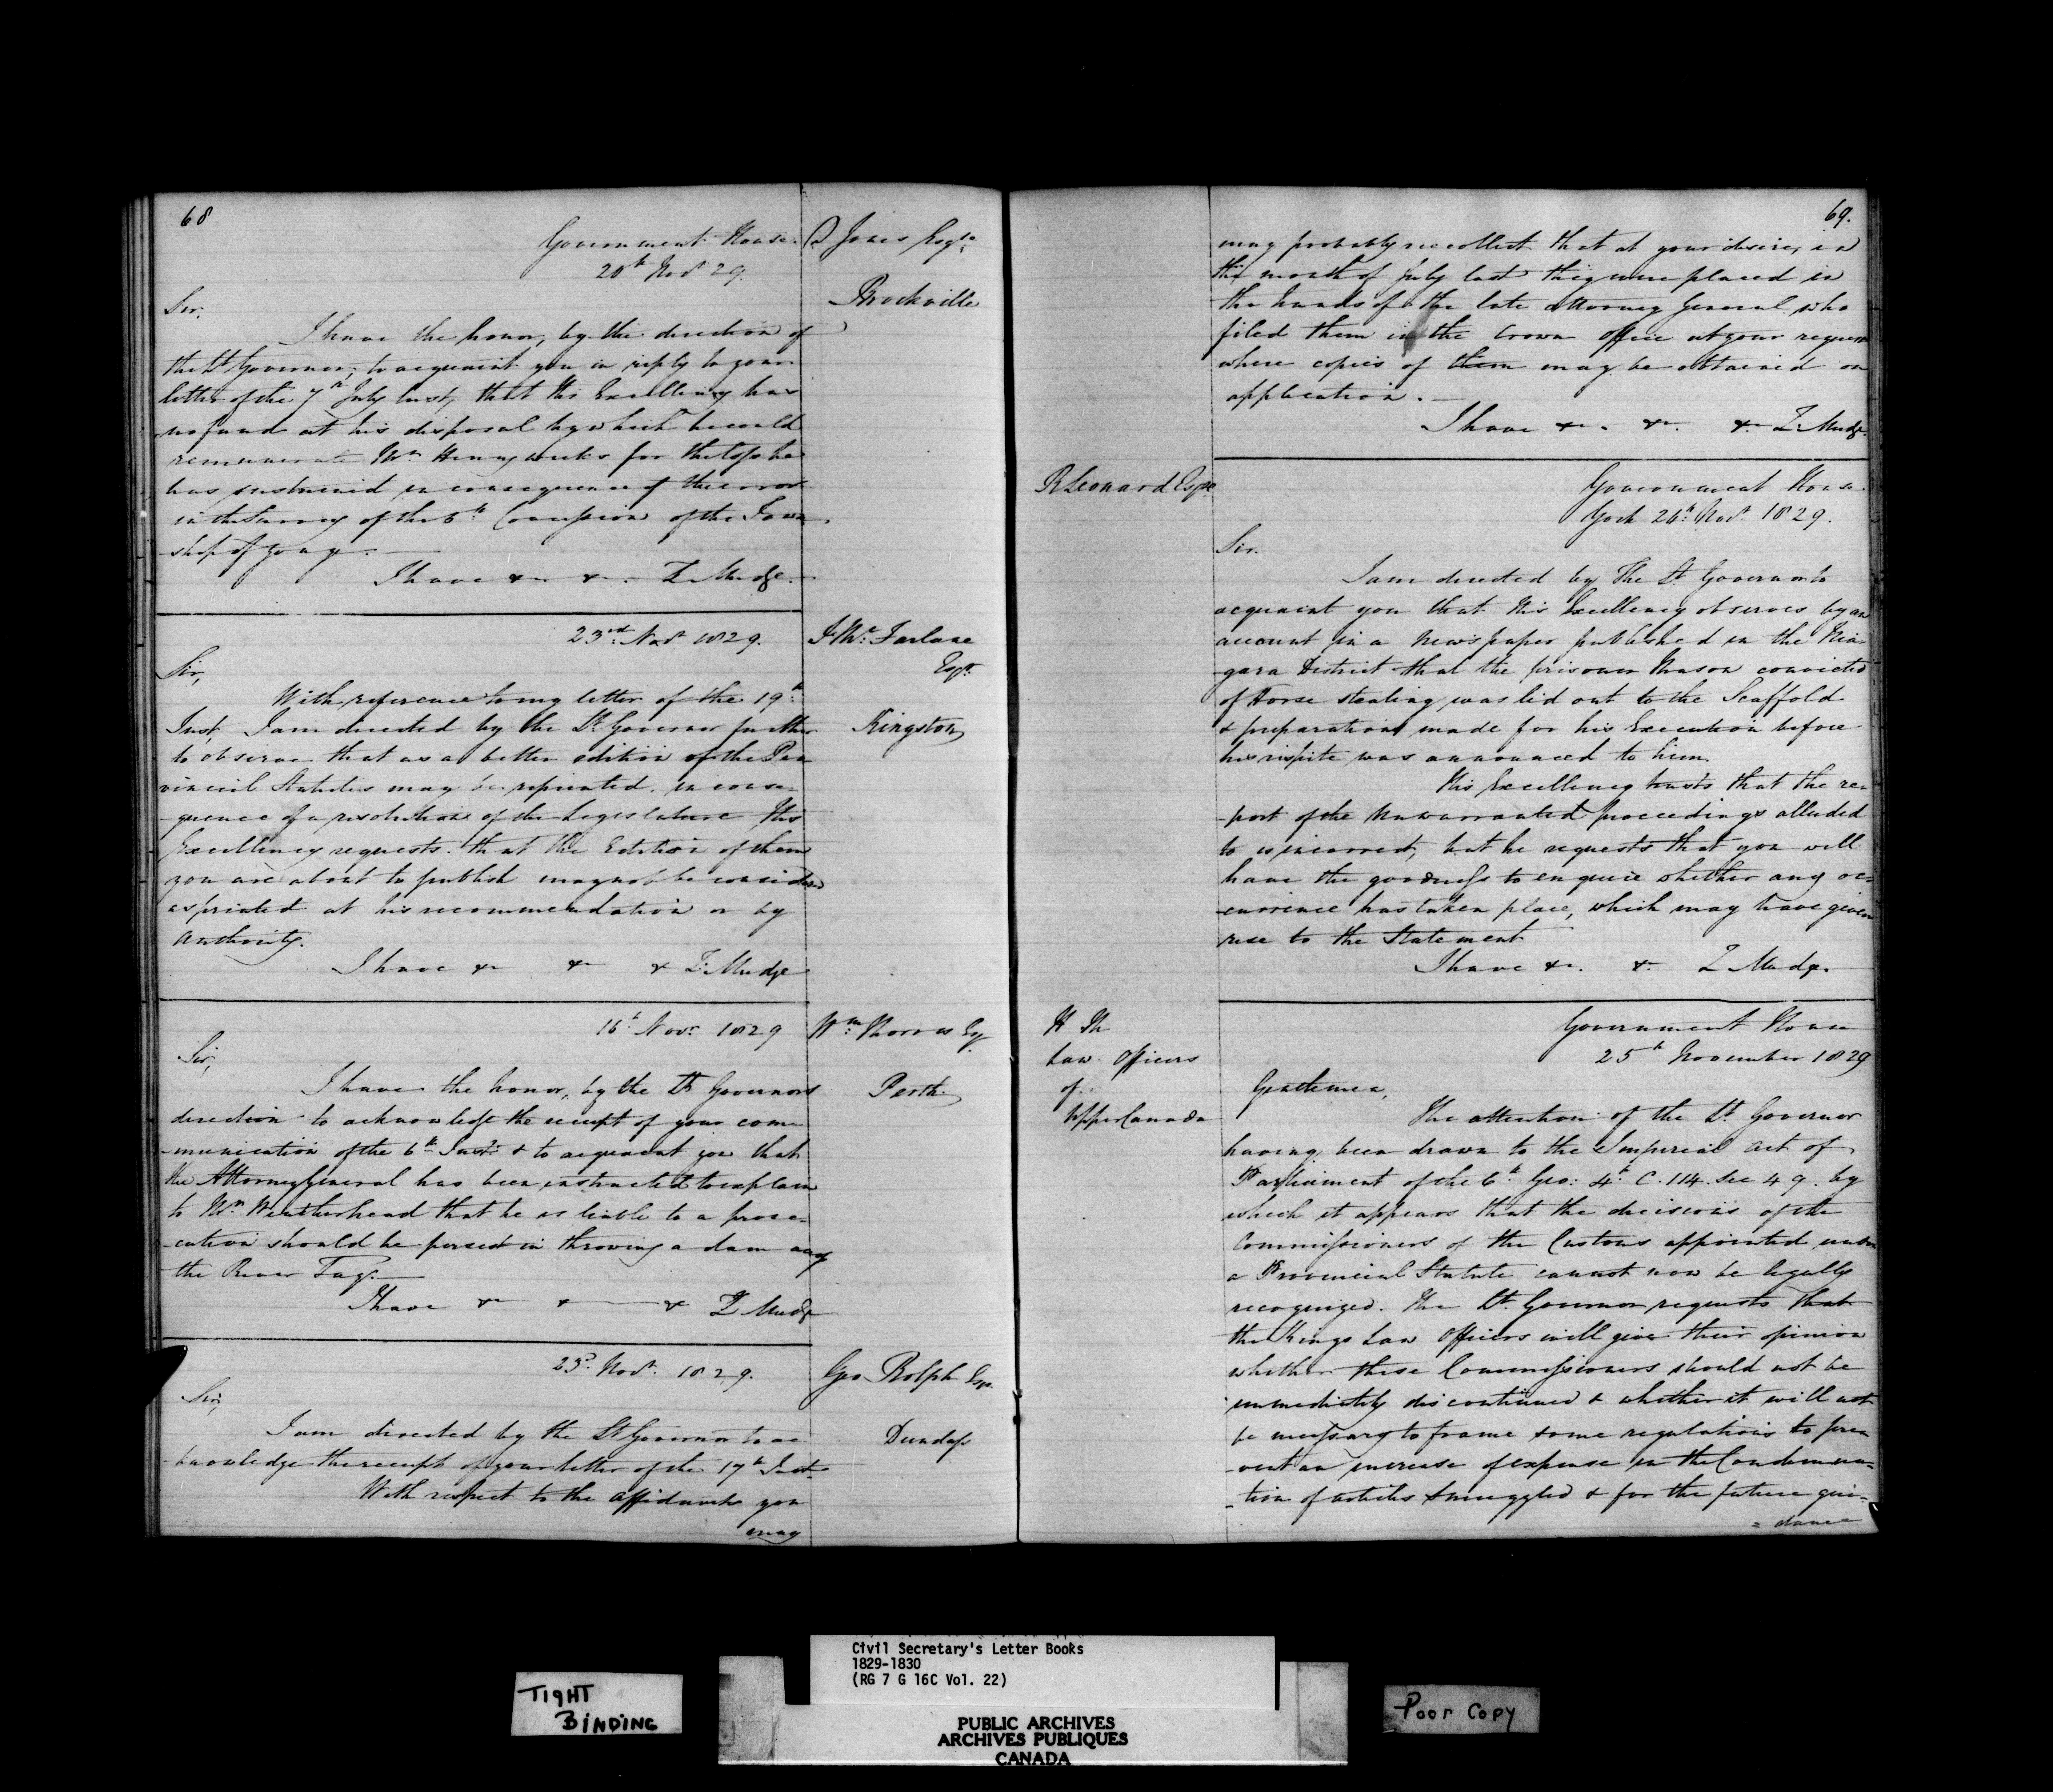 68
Government House
20th Novr 29.
D Jones Esqre
Brockville
Sir,
I have the honor, by the direction of
the Lt Governor, to acquaint you in reply to your
letter of the 7th July last, that His Excellency has
no fund at his disposal by which he could
remunerate Mr Henry weeks for the loss he
has sustained in consequence of the error
in the Survey of the 6th Concession of the Town
ship of yonge.
I have &c &c. Z. Mudge.
23rd Novr 1829.
J. Mc Farlane
Esqre
Kingston
Sir,
With reference to my letter of the 19th
Inst, I am directed by the Lt Governor further
to observe that as a better edition of the Pro
vincial Statutes may be reprinted in conse
-quence of a resolution of the Legislature His
Excellency requests that the Edition of them
you are about to publish may not be considered
as printed at his recommendation or by
authority.
I have &c &c & Z. Mudge
16t Novr 1829
Wm Morris Esq
Perth
Sir,
I have the honor, by the Lt Governors
direction to acknowledge the receipt of your com
-munication of the 6th Inst. & to acquaint you that
the Attorney General has been instructed to explain
to Mr Weatherhead that he is liable to a prose-
-cution should he persist in throwing a dam across
the River Tay.
I have &c & &c Z Mudge
23d Novr 1829.
Geo Rolph Esqre
Dundass
Sir,
I am directed by the Lt Governor to ac
-knowledge the receipt of your letter of the 17th Inst.
With respect to the affidavits you
may
69.
may probably recollect that at your desire, in
the month of July last they were placed in
the hands of the late Attorney General, who
filed them in the Crown Office at your request
where copies of them may be obtained on
application.
I have &c. &c. &c Z. Mudge.
R Leonard Esqre
Government House
York 24th Novr 1829.
Sir.
I am directed by The Lt Governor to
acquaint you that His Excellency observes by an
account in a Newspaper published in the Nia
-gara District that the prisoner Mason convicted
of Horse stealing was led out to the Scaffold
& preparations made for his Execution before
his respite was announced to him.
His Excellency trusts that the re-
-port of the Unwarranted proceedings alluded
to is incorrect, but he requests that you will
have the goodness to enquire whether any oc=
-currence has taken place, which may have given
rise to the Statement
I have &c. &c Z Mudge.
Government House
25th November 1829
H M
Law Officers
of
Upper Canada
Gentlemen,
The attention of the Lt. Governor
having been drawn to the Imperial Act of
Parliament of the 6th Geo: 4th C. 114 Sec 49. by
which it appears that the decisions of the
Commissioners of the Customs appointed under
a Provincial Statute cannot now be legally
recognized. The Lt. Governor requests that
the Kings Law Officers will give their opinion
whether these Commissioners should not be
immediately discontinued & whether it will not
be necessary to frame some regulations to pre
-vent an increase of expense in the Condemna=
-tion of articles smuggled & for the future gui=
=dance
Civil Secretary's Letter Books
1829-1830
(RG 7 G 16C Vol. 22)
TIGHT
BINDING
PUBLIC ARCHIVES
ARCHIVES PUBLIQUES
CANADA
Poor Copy